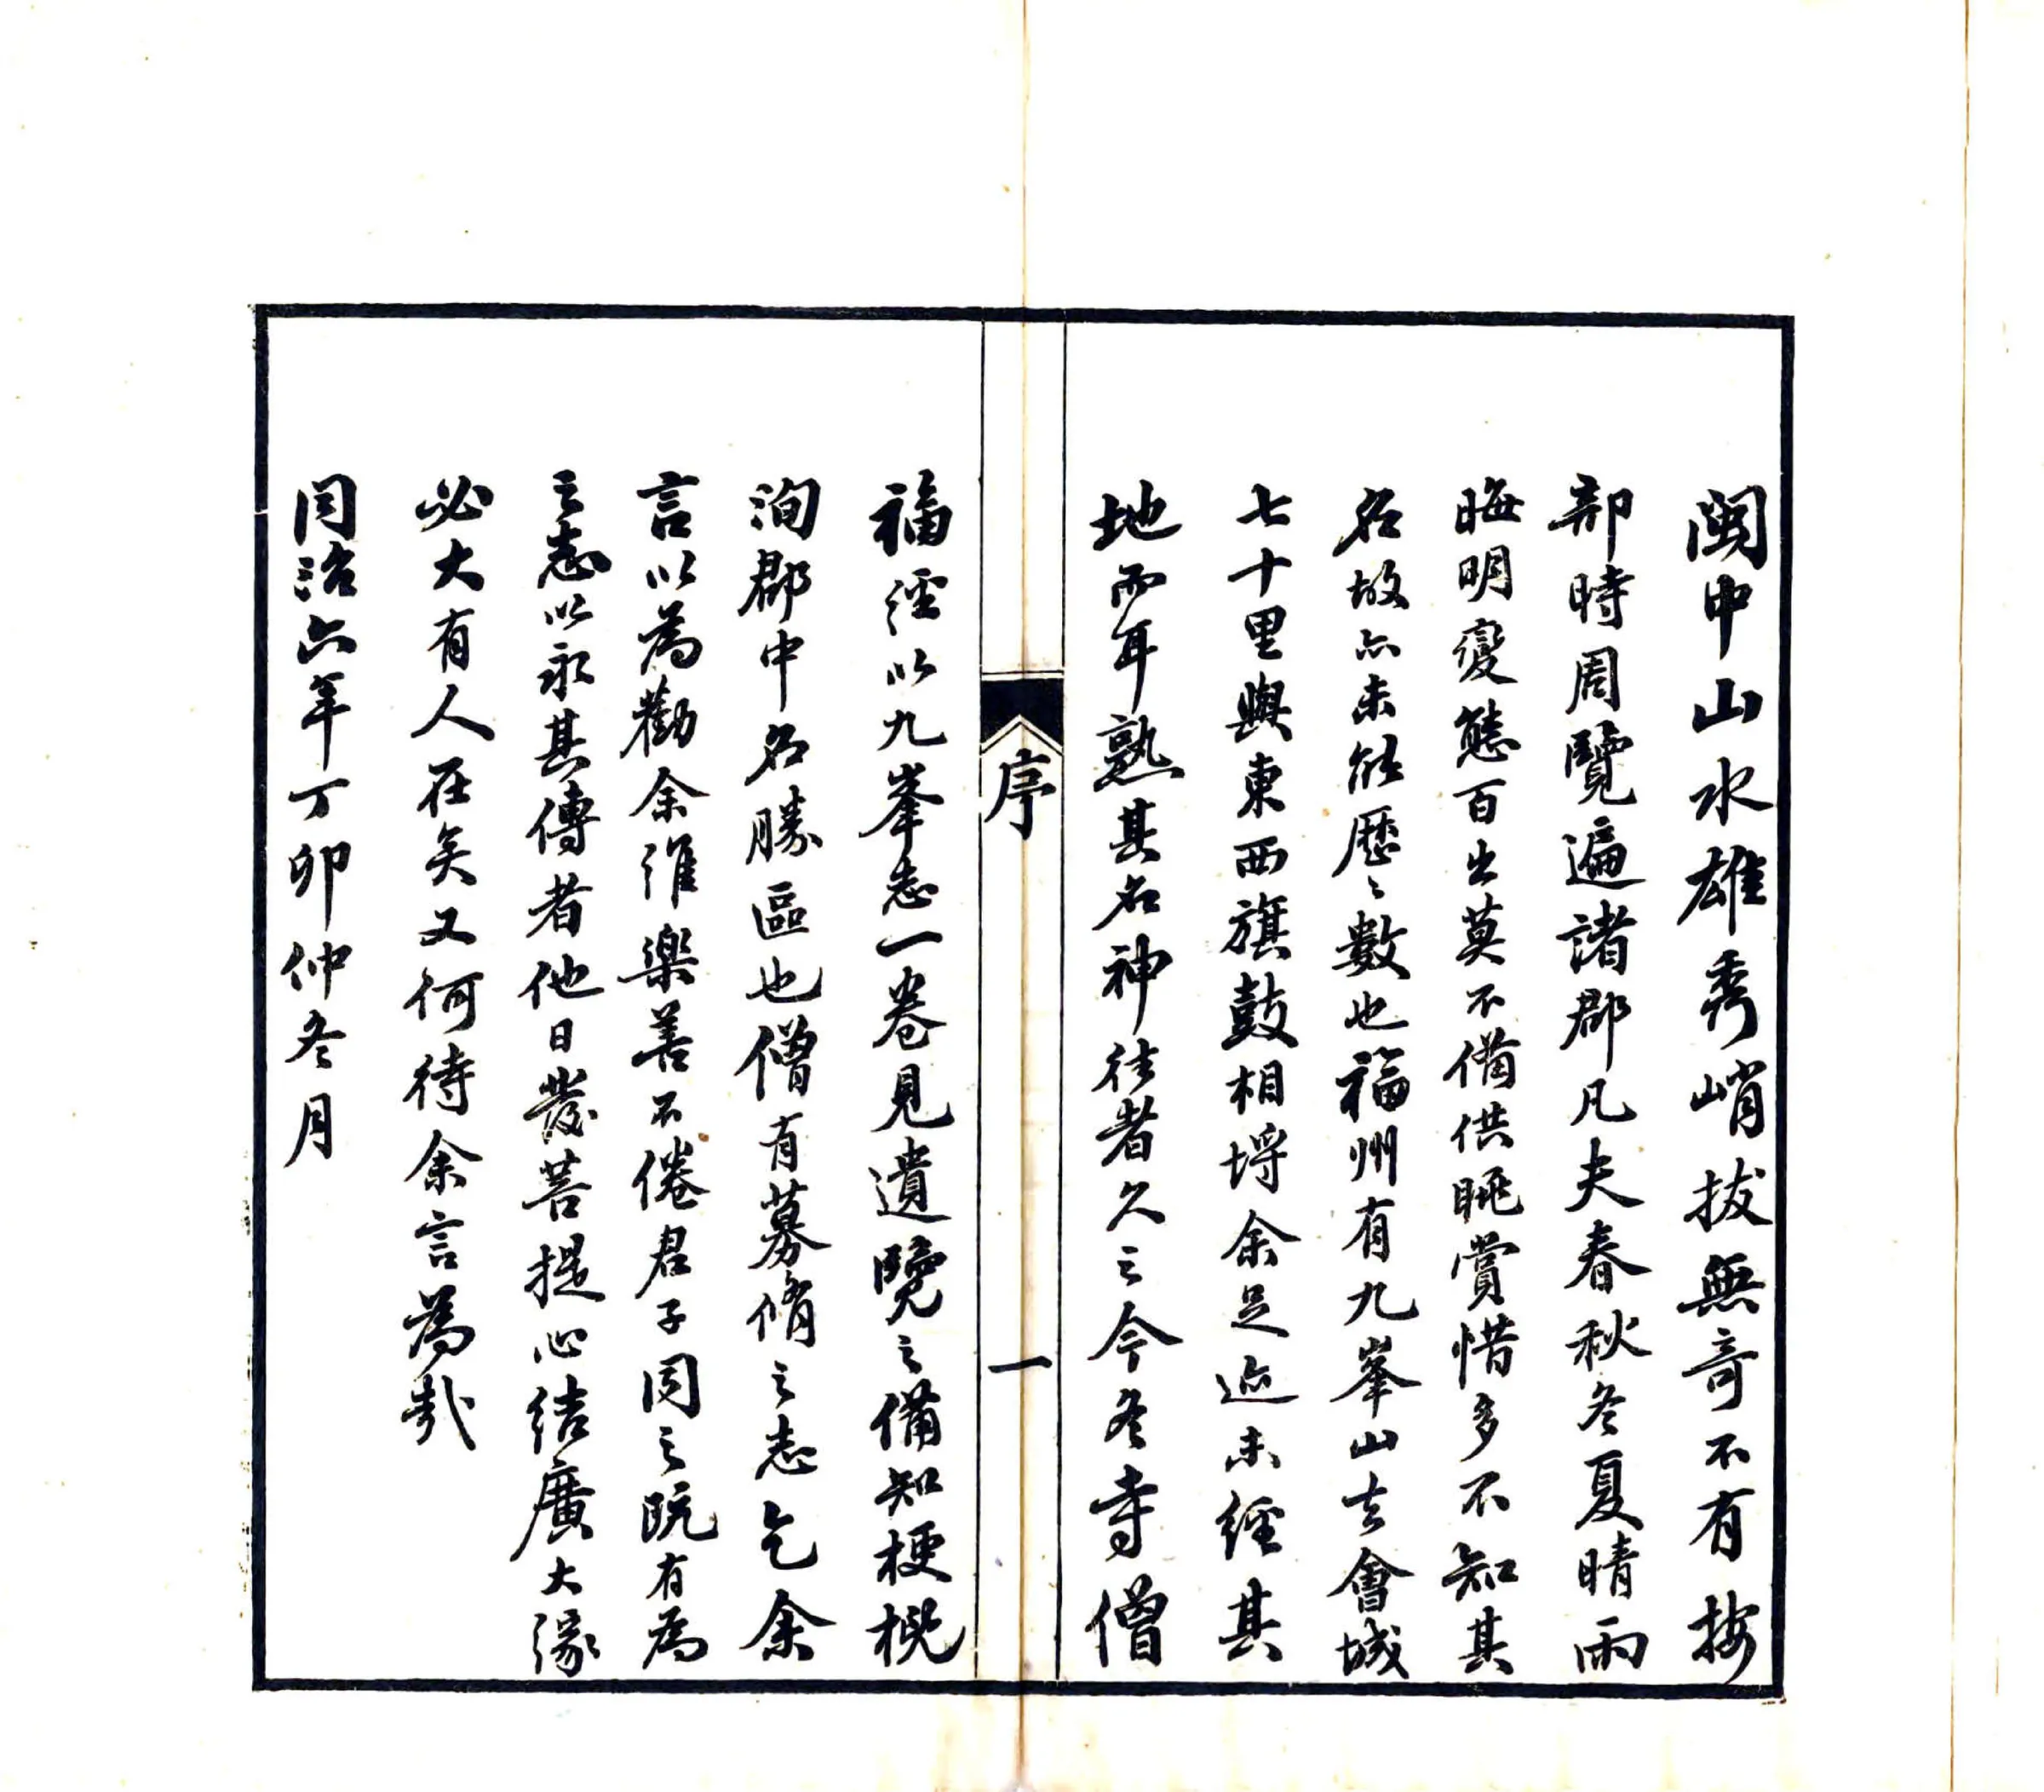 閩中山水雄秀峭拔無奇不有按
部時周覽遍諸郡凡夫春秋冬夏晴雨
晦明變態百出莫不備供眺賞惜多不知其
名故亦未能歷〻數也福州有九峯山去會城
七十里與東西旗鼓相埒余足迹未經其
地而耳熟其名神往者久之今冬寺僧
序
一
福經以九峯志一卷見遺覽之備知梗概
洵郡中名勝區也僧有募脩之志乞余
言以為勸余維樂善不倦君子同之既有為
之志以永其傳者他日發菩提心結廣大緣
必大有人在矣又何待余言為哉
同治六年丁卯仲冬月